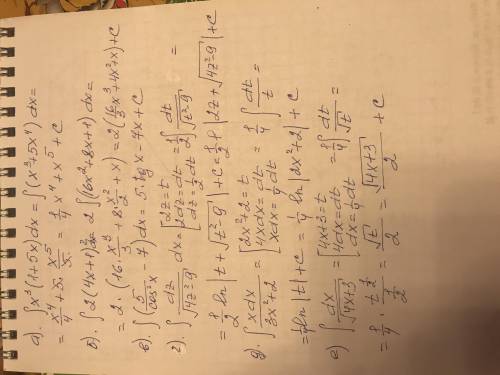 а). ∫x³(1+5x)dx = ∫(x³+5x⁴)dx=
= x⁴/4 + 5·x⁵/5 = 1/4 x⁴ + x⁵ + C
б). ∫2(4x+1)²dx = 2∫(16x²+8x+1)dx=
= 2·(16·x³/3 + 8·x²/2 + x) = 2(16/3 x³+4x²+x)+C
в). ∫(5/cos²x - 7)dx = 5·tg x - 7x + C
г). ∫dz/√(4z²-9) dx = [2z=t 2dz=dt dz=1/2 dt] = 1/2 ∫dt/√(t²-9) =
= 1/2 ln|t+√(t²-9)|+C = 1/2 ln|2z+√(4z²-9)|+C
д). ∫xdx/(3x²+2) = [2x²+2=t 4xdx=dt xdx=1/4 dt] = 1/4 ∫dt/t =
= 1/4 ln|t|+C = 1/4 ln|2x²+2|+C
е) ∫dx/√(4x+3) = [4x+3=t 4dx=dt dx=1/4 dt] = 1/4 ∫dt/√t =
= 1/4 · t^(1/2)/(1/2) = √t/2 = √(4x+3)/2 + C